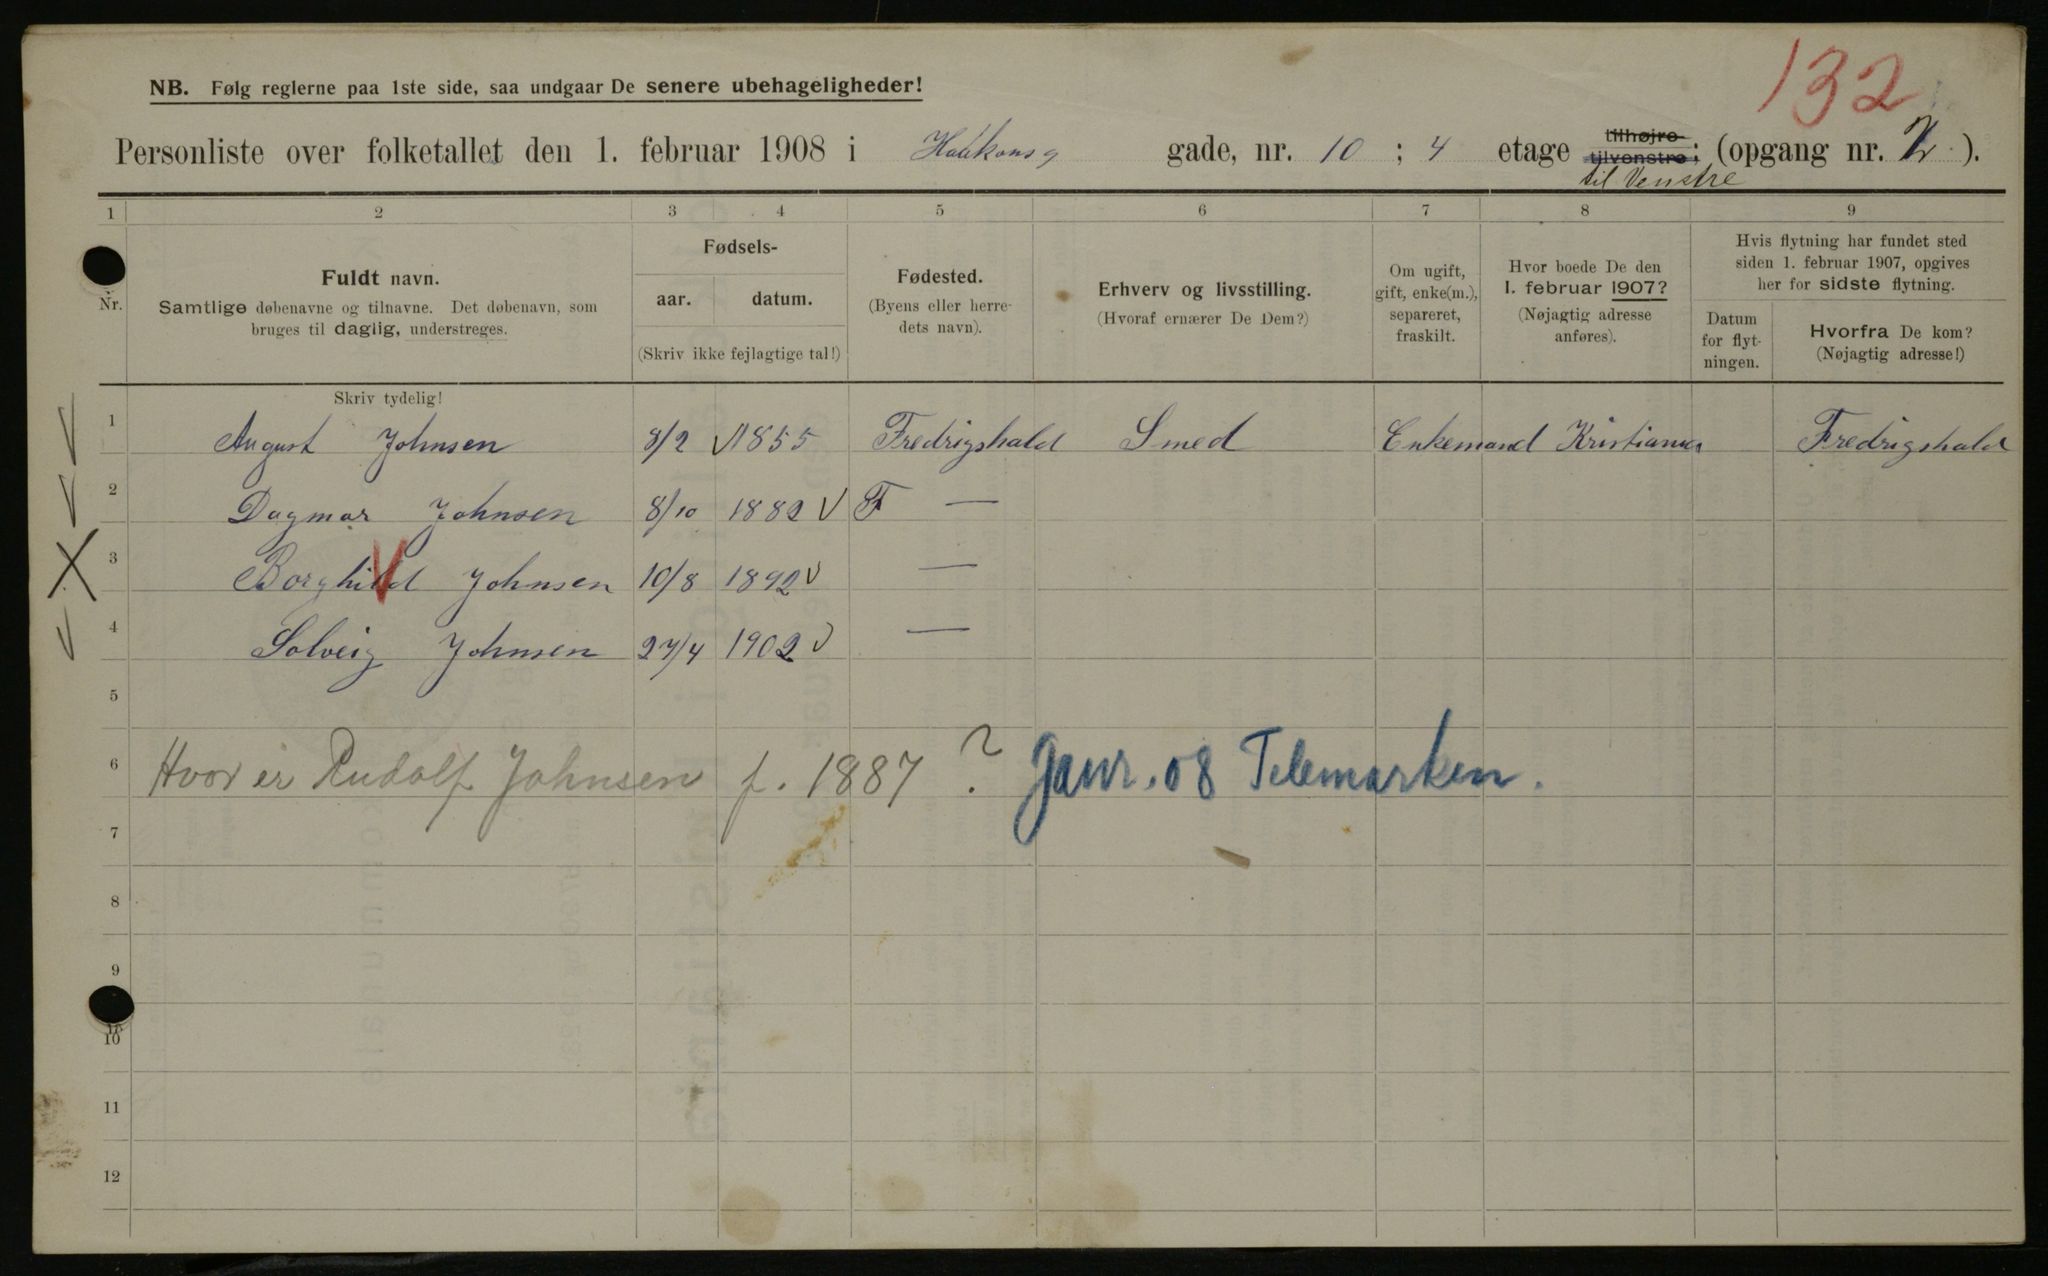 132
NB. Følg reglerne paa 1ste side, saa undgaar De senere ubehageligheder!
Personliste over folketallet den 1. februar 1908 i Haakonsg gade, nr. 10; 4 etage tilhøjre tilvenstre; (opgang nr. ).
til Venstre
1 2 3 4 5 6 7 8 9
Nr.
Fuldt navn.
Samtlige døbenavne og tilnavne. Det døbenavn, som
bruges til daglig, understreges.
Fødsels-
aar. datum.
(Skriv ikke fejlagtige tal!)
Fødested.
(Byens eller herre-
dets navn).
Erhverv og livsstilling.
(Hvoraf ernærer De Dem?)
Om ugift,
gift, enke(m.),
separeret,
fraskilt.
Hvor boede De den
1. februar 1907?
(Nøjagtig adresse
anføres).
Hvis flytning har fundet sted
siden 1. februar 1907, opgives
her for sidste flytning.
Datum
for flyt-
ningen.
Hvorfra De kom?
(Nøjagtig adresse!)
Skriv tydelig!
1 August Johnsen 8/2 1855 Fredrigshald Smed Enkemand Kristiania Fredrigshald
2 Dagmar Johnsen 8/10 1882 F —
3 Borghild Johnsen 10/8 1892 —
4 Solveig Johnsen 27/4 1902 —
5
6 Hvor er Rudolf Johnsen f. 1887? Janr. 08 Telemarken.
7
8
9
10
10
11
12